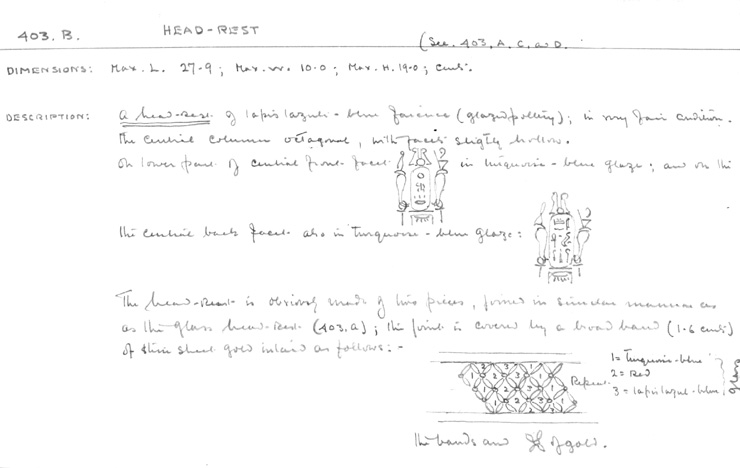 403. B. HEAD-REST
(See. 403, A, C, and D.
DIMENSIONS: Max. L. 27·9 ; Max. W. 10·0 ; Max. H. 19·0 ; Cents.
DESCRIPTION: A head-rest of lapis lazuli-blue faience (glazed pottery); in very fair condition.
The central column octagonal, with facets slightly hollow.
On lower part of central front facet in turquoise-blue glaze; and on the
the central back facet also in turquoise-blue glaze:
The head-rest is obviously made of two pieces, joined in similar manner as
as the glass head-rest (403.A); the joint is covered by a broad band (1·6 cents)
of thin sheet gold inlaid as follows:-
1 = Turquoise-blue
2 = Red
3 = lapis lazuli-blue
glass
Repeat.
The bands and of gold.